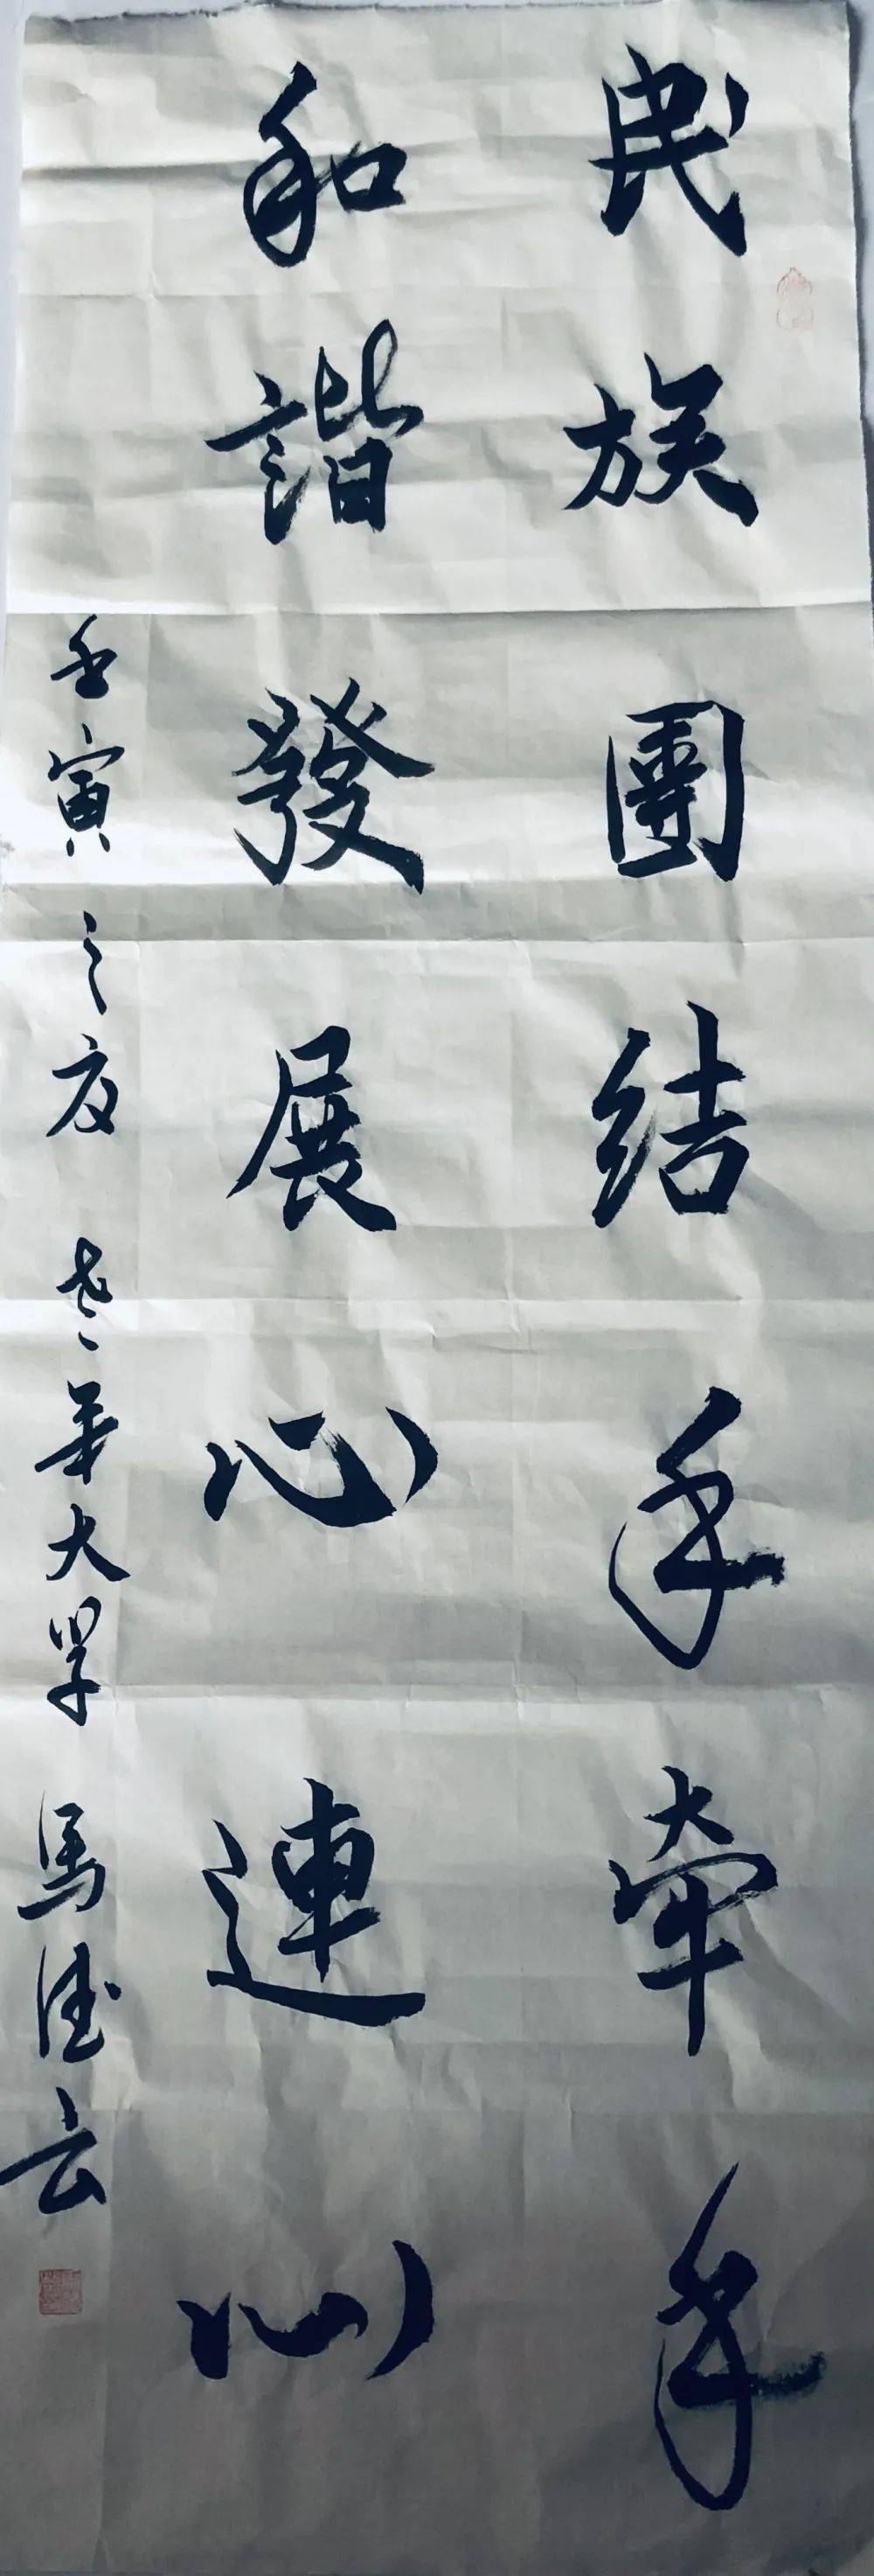 民族團结手牽手
和諧發展心連心
壬寅之夏 老年大学 馬德云